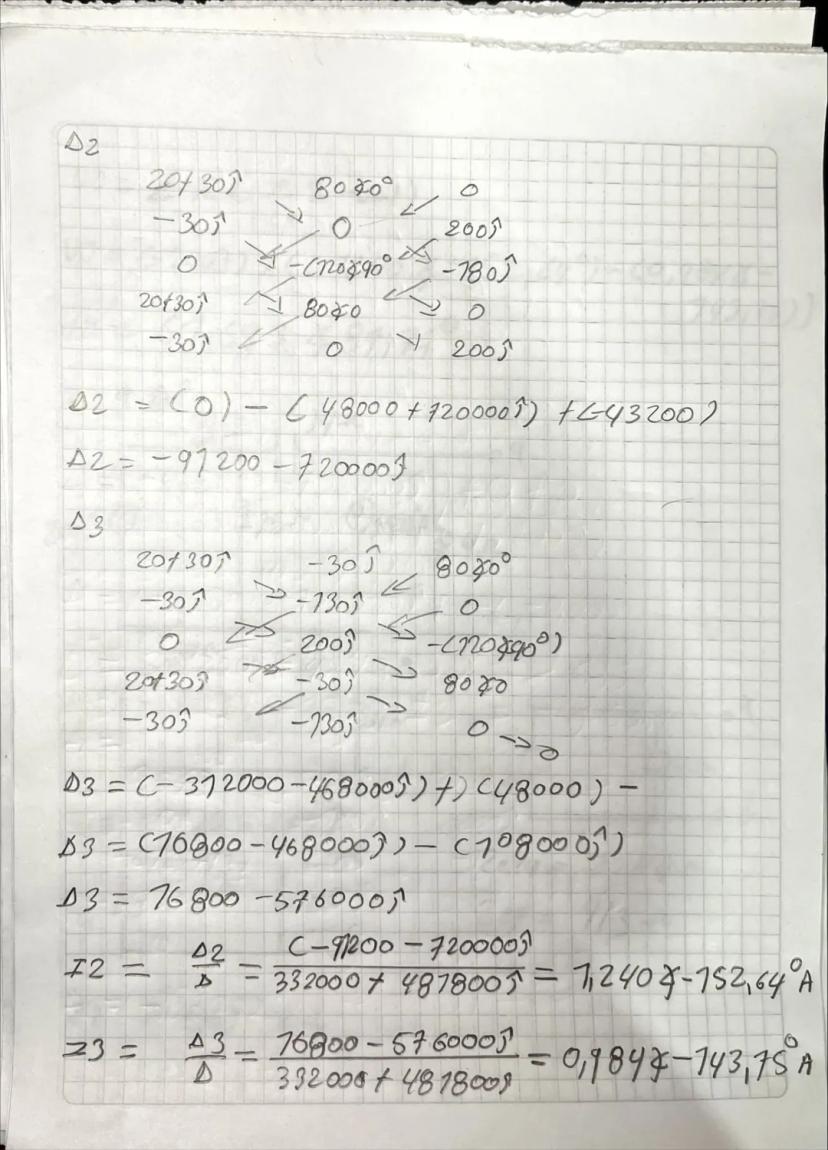 Δ2
20+30ĵ 80∡0° 0
-30ĵ 0 200ĵ
0 -(120∡90° -180ĵ
20+30ĵ 80∡0 0
-30ĵ 0 200ĵ
Δ2 = (0) - (48000 + 720000ĵ) + (-43200)
Δ2 = -91200 - 720000ĵ
Δ3
20+30ĵ -30ĵ 80∡0°
-30ĵ -130ĵ 0
0 200ĵ -(120∡90°)
20+30ĵ -30ĵ 80∡0
-30ĵ -130ĵ 0 → 0
Δ3 = (-312000 - 468000ĵ) + (48000) -
Δ3 = (16800 - 468000ĵ) - (108000ĵ)
Δ3 = 16800 - 576000ĵ
I2 = Δ2/Δ = (-91200 - 720000ĵ / 332000 + 487800ĵ = 1,240∡-152,64° A
I3 = Δ3/Δ = 16800 - 576000ĵ / 332000 + 487800ĵ = 0,984∡-143,75° A